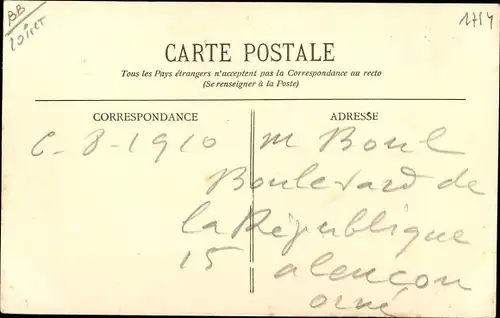 BB
Loiret
1754
CARTE POSTALE
Tous les Pays étrangers n'acceptent pas la Correspondance au recto
(Se renseigner à la Poste)
CORRESPONDANCE
6-8-1910
ADRESSE
M Boul
Boulevard de
la République
15 alençon
orne